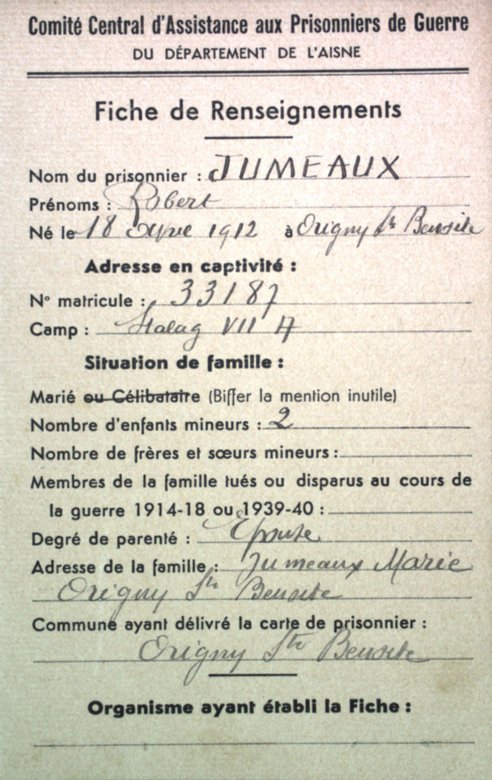 Comité Central d'Assistance aux Prisonniers de Guerre
DU DÉPARTEMENT DE L'AISNE
Fiche de Renseignements
Nom du prisonnier : JUMEAUX
Prénoms : Robert
Né le 18 1912 à Origny Ste Benoite
Adresse en captivité :
No matricule : 33187
Camp : Stalag VII A
Situation de famille :
Marié ou Célibataire (Biffer la mention inutile)
Nombre d'enfants mineurs : 2
Nombre de frères et sœurs mineurs :
Membres de la famille tués ou disparus au cours de
la guerre 1914-18 ou 1939-40 :
Degré de parenté : Epouse
Adresse de la famille : Jumeaux Marie
Origny Ste Benoite
Commune ayant délivré la carte de prisonnier :
Origny Ste Benoite
Organisme ayant établi la Fiche :